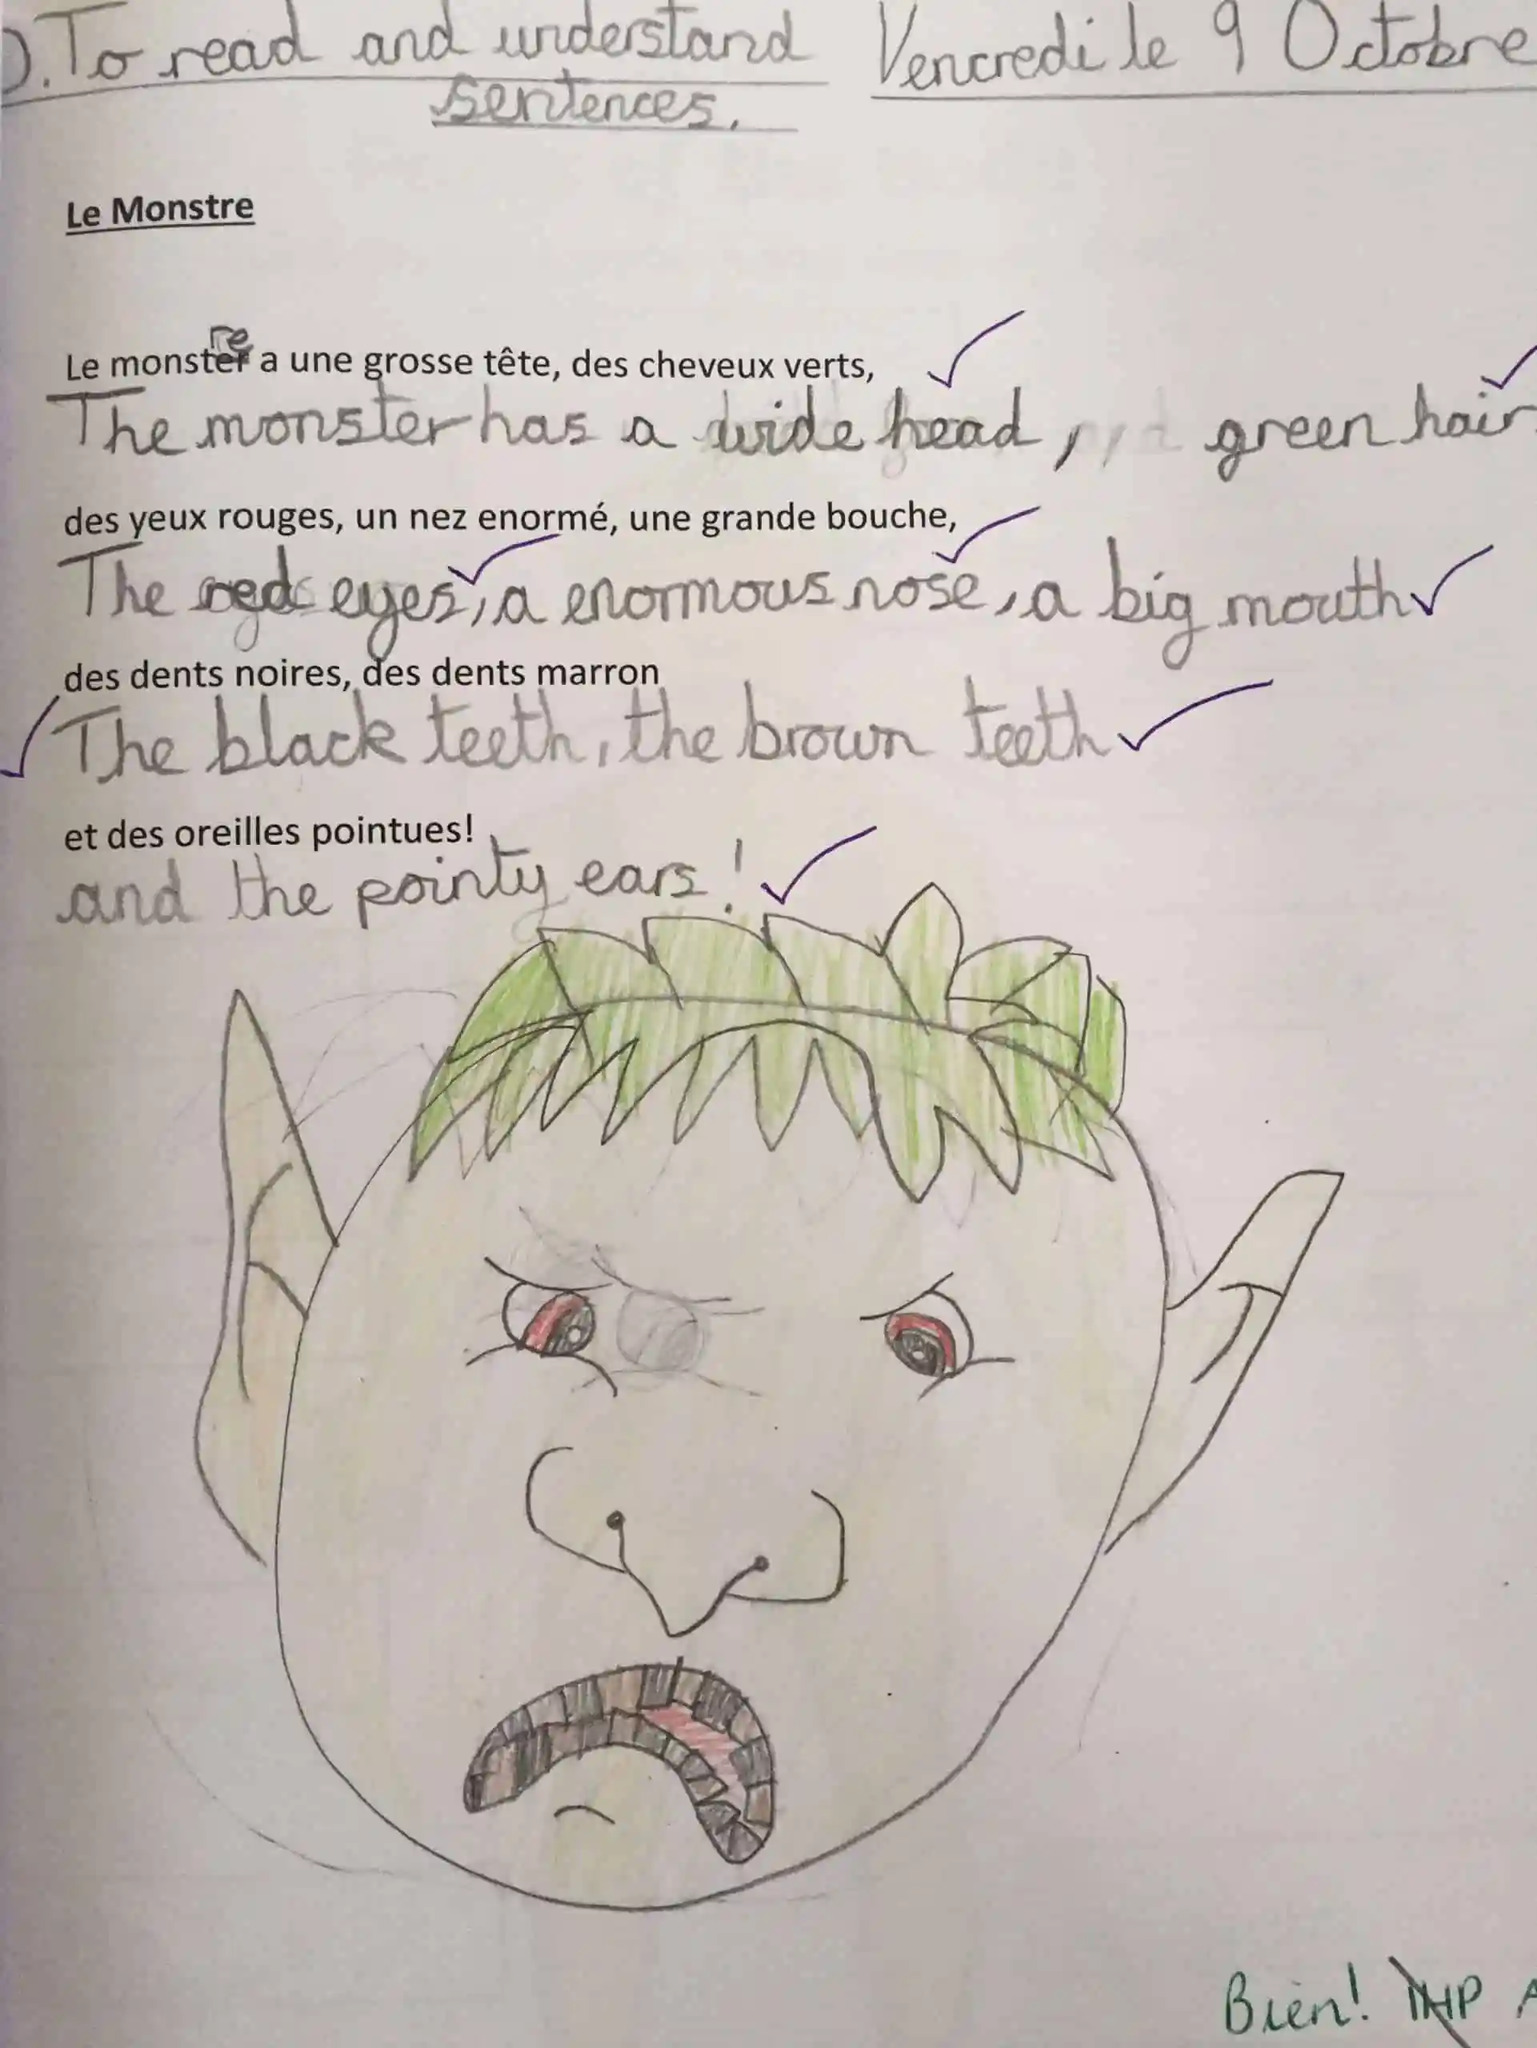 O. To read and understand sentences.
Vencredi le 9 Octobre
Le Monstre
Le monstre a une grosse tête, des cheveux verts,
The monster has a wide head, green hair
des yeux rouges, un nez enormé, une grande bouche,
The red eyes, a enormous nose, a big mouth
des dents noires, des dents marron
The black teeth, the brown teeth
et des oreilles pointues!
and the pointy ears!
Bien!